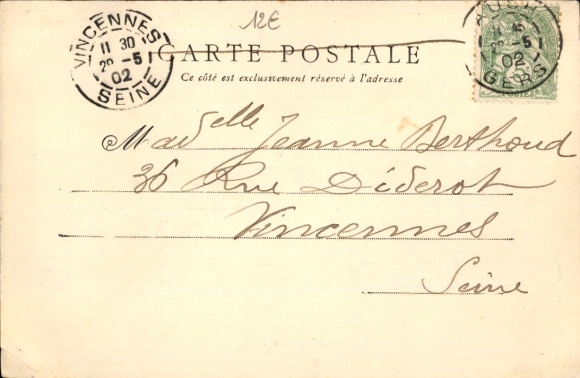 12€
VINCENNES
11 30
29 -5
02
SEINE
AUCH
29 -5
02
GERS
CARTE POSTALE
Ce côté est exclusivement réservé à l'adresse
Madelle Jeanne Berthoud
36 Rue Diderot
Vincennes
Seine